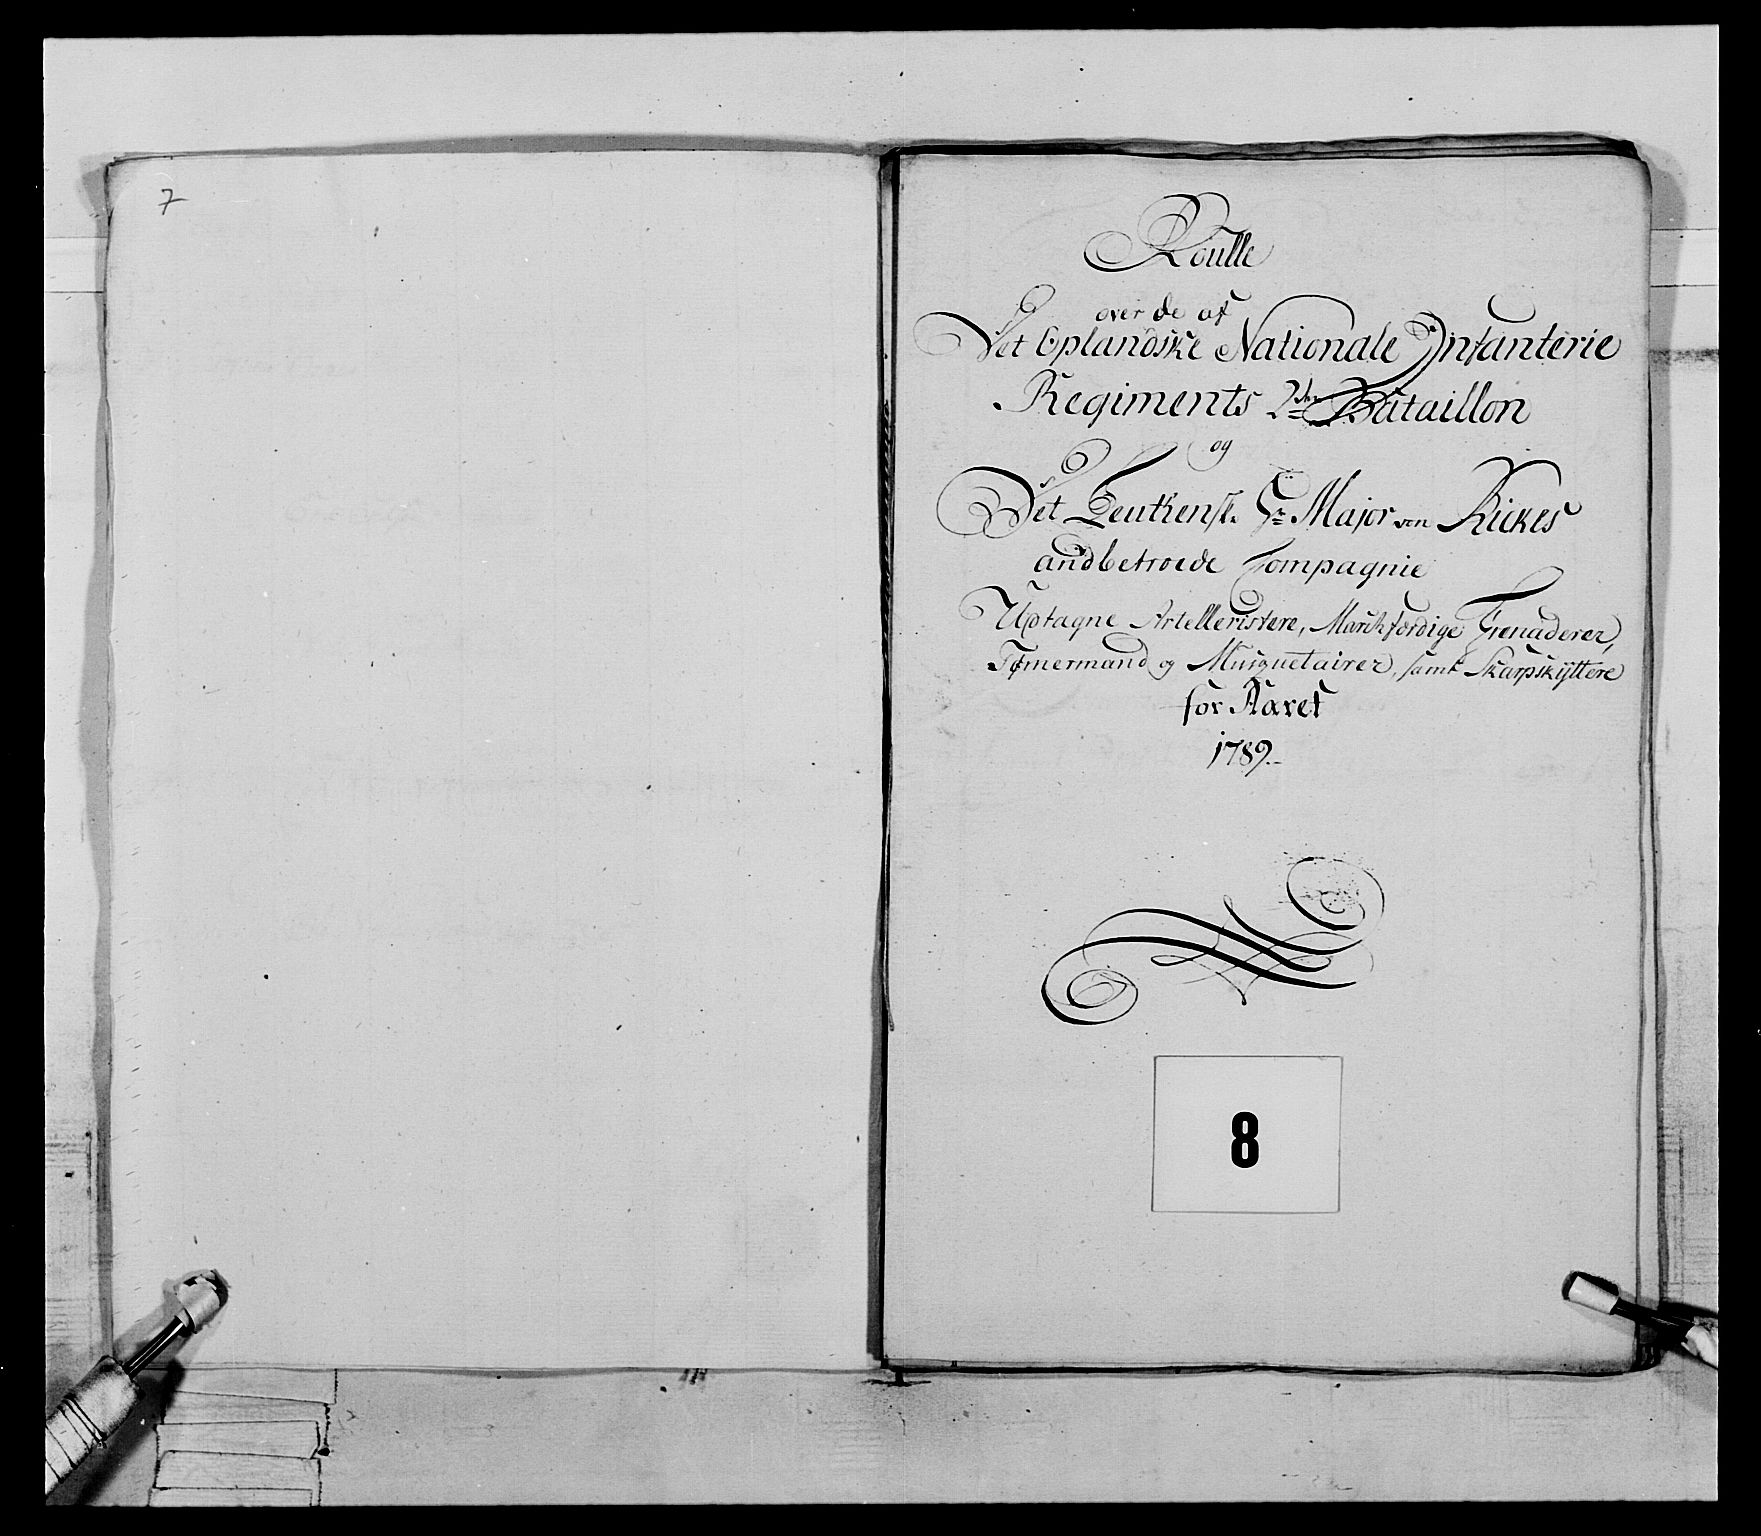 7
Roulle
over de af
Det Oplandske Nationale Infanterie
Regiments 2den Bataillon
og
Det Leutkensk. Hr Major von Rickes
andbetroede Compagnie
Udtagne Artelleristere, Marchfærdige Grenaderer,
Tømermænd og Musquetairer, samt Skarpskÿttere
for Aaret
1789.
8